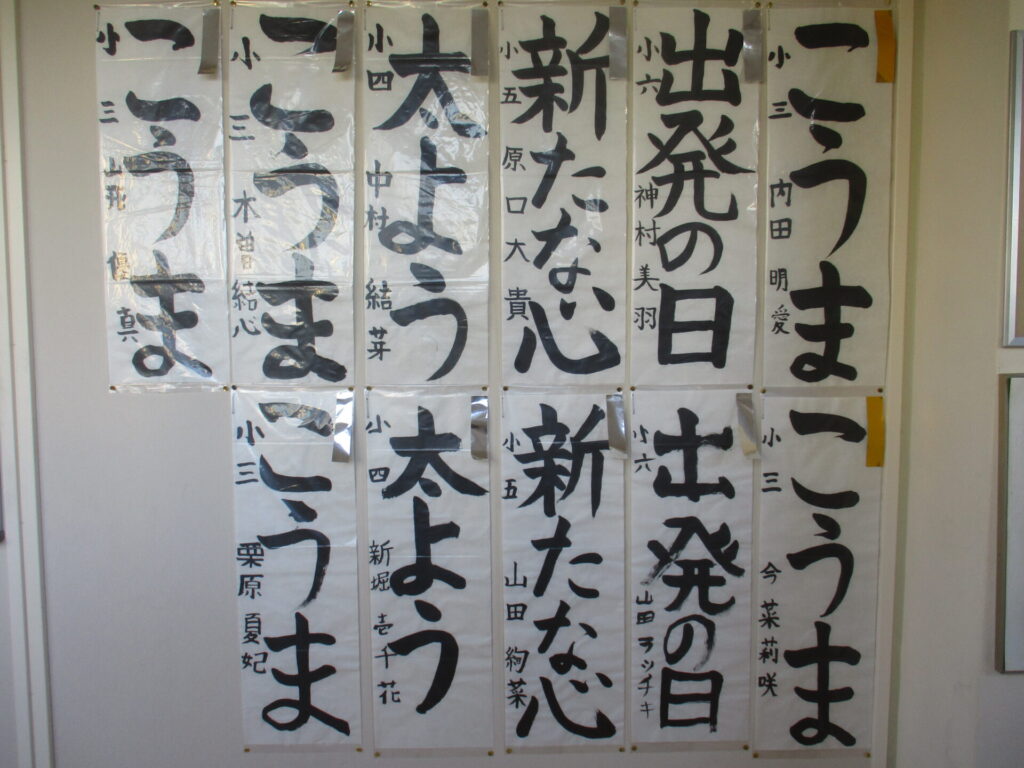 こうま
小三 内田 明愛
出発の日
小六 神村 美羽
新たな心
小五 原口 大貴
太よう
小四 中村 結芽
こうま
小三 木曽 結心
こうま
小三 山形 優真
こうま
小三 今 菜莉咲
出発の日
小六 山田
新たな心
小五 山田 絢菜
太よう
小四 新堀 壱千花
こうま
小三 栗原 夏妃